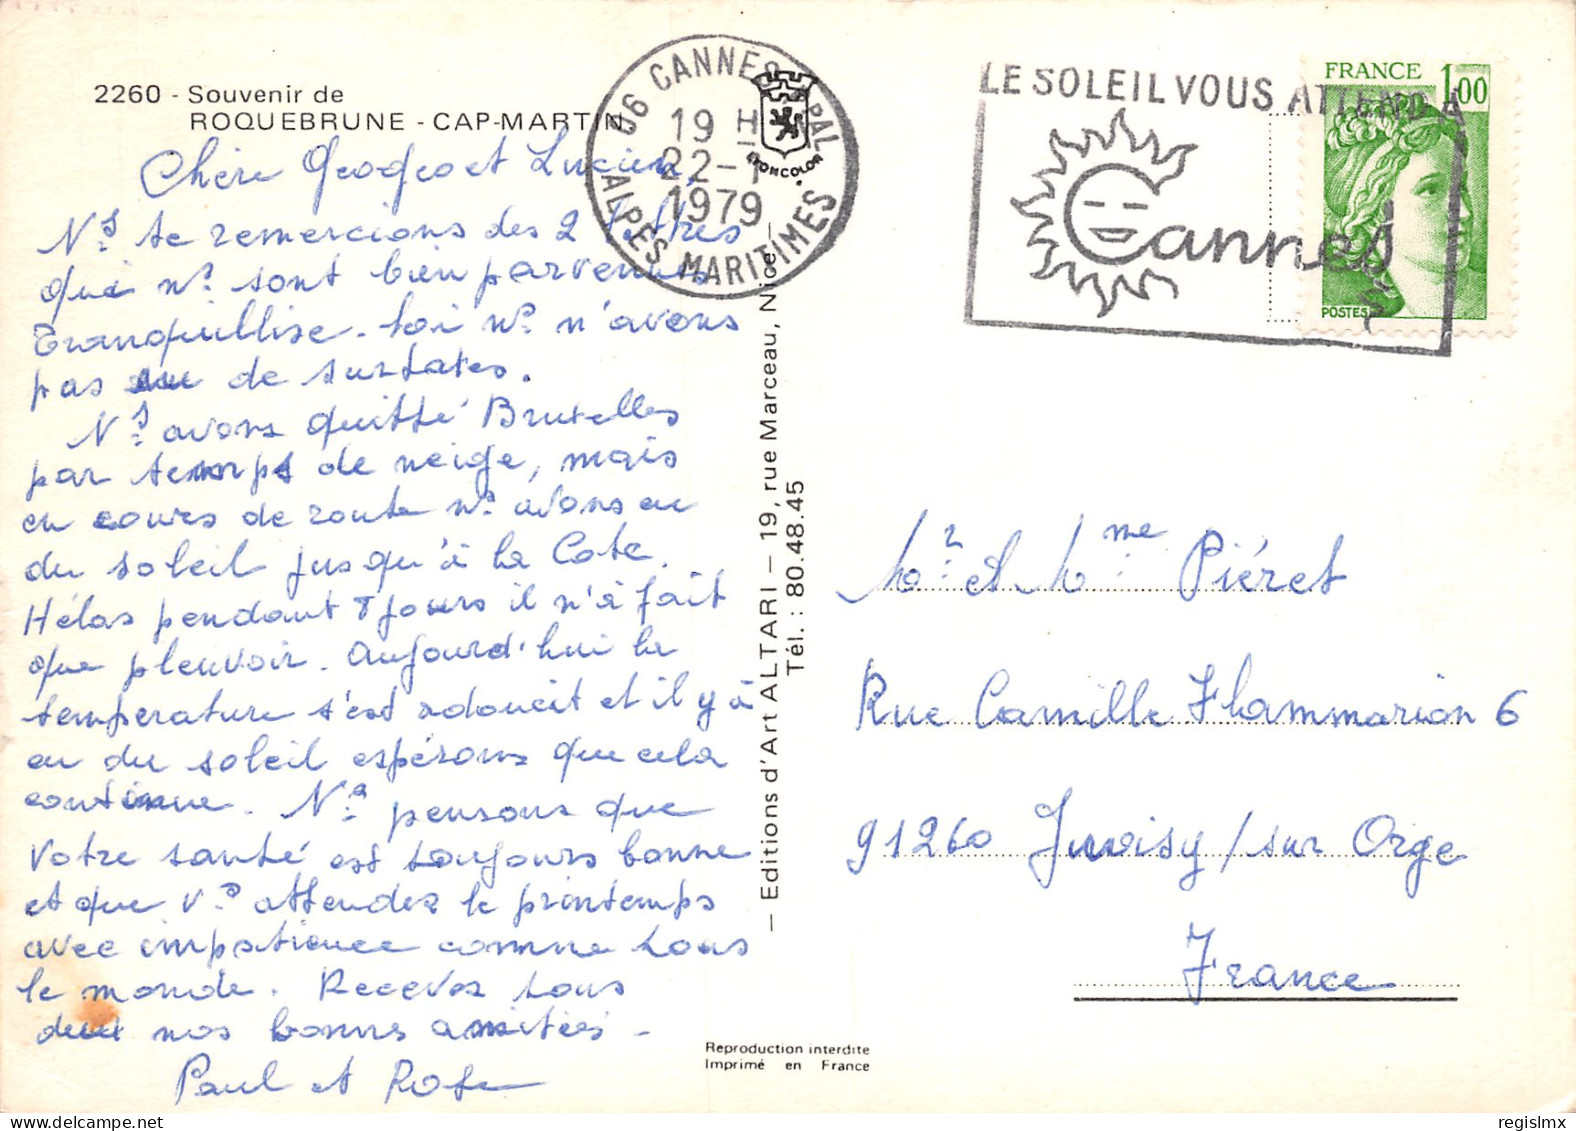 2260 - Souvenir de
ROQUEBRUNE - CAP-MARTIN
Chère et Lucien,
N.s te remercions des 2 lettres
qui n.s sont bien parvenues
Tranquillise-toi n.s n'avons
pas de surtates.
N.s avons quitté Bruxelles
par temps de neige, mais
en cours de route n.s avons eu
du soleil jusqu'à la Cote.
Hélas pendant 8 jours il n'à fait
que pleuvoir. Aujourd'hui la
temperature s'est adoucit et il y à
eu du soleil espérons que cela
continue. N.s pensons que
votre santé est toujours bonne
et que v.s attendez le printemps
avec impatience comme tous
le monde. Recevez tous
deux nos bonnes amitiés -
Paul et Rose
06 CANNES PPAL
19 H
22-1
1979
ALPES MARITIMES
LYONCOLOR
— Editions d'Art ALTARI — 19, rue Marceau, Nice —
Tél. : 80.48.45
Reproduction interdite
Imprimé en France
LE SOLEIL VOUS ATTEND A
Cannes
FRANCE 1,00
POSTES
Mr et Mme Piéret
Rue Camille Flammarion 6
91260 Juvisy/sur Orge
France
regislmx